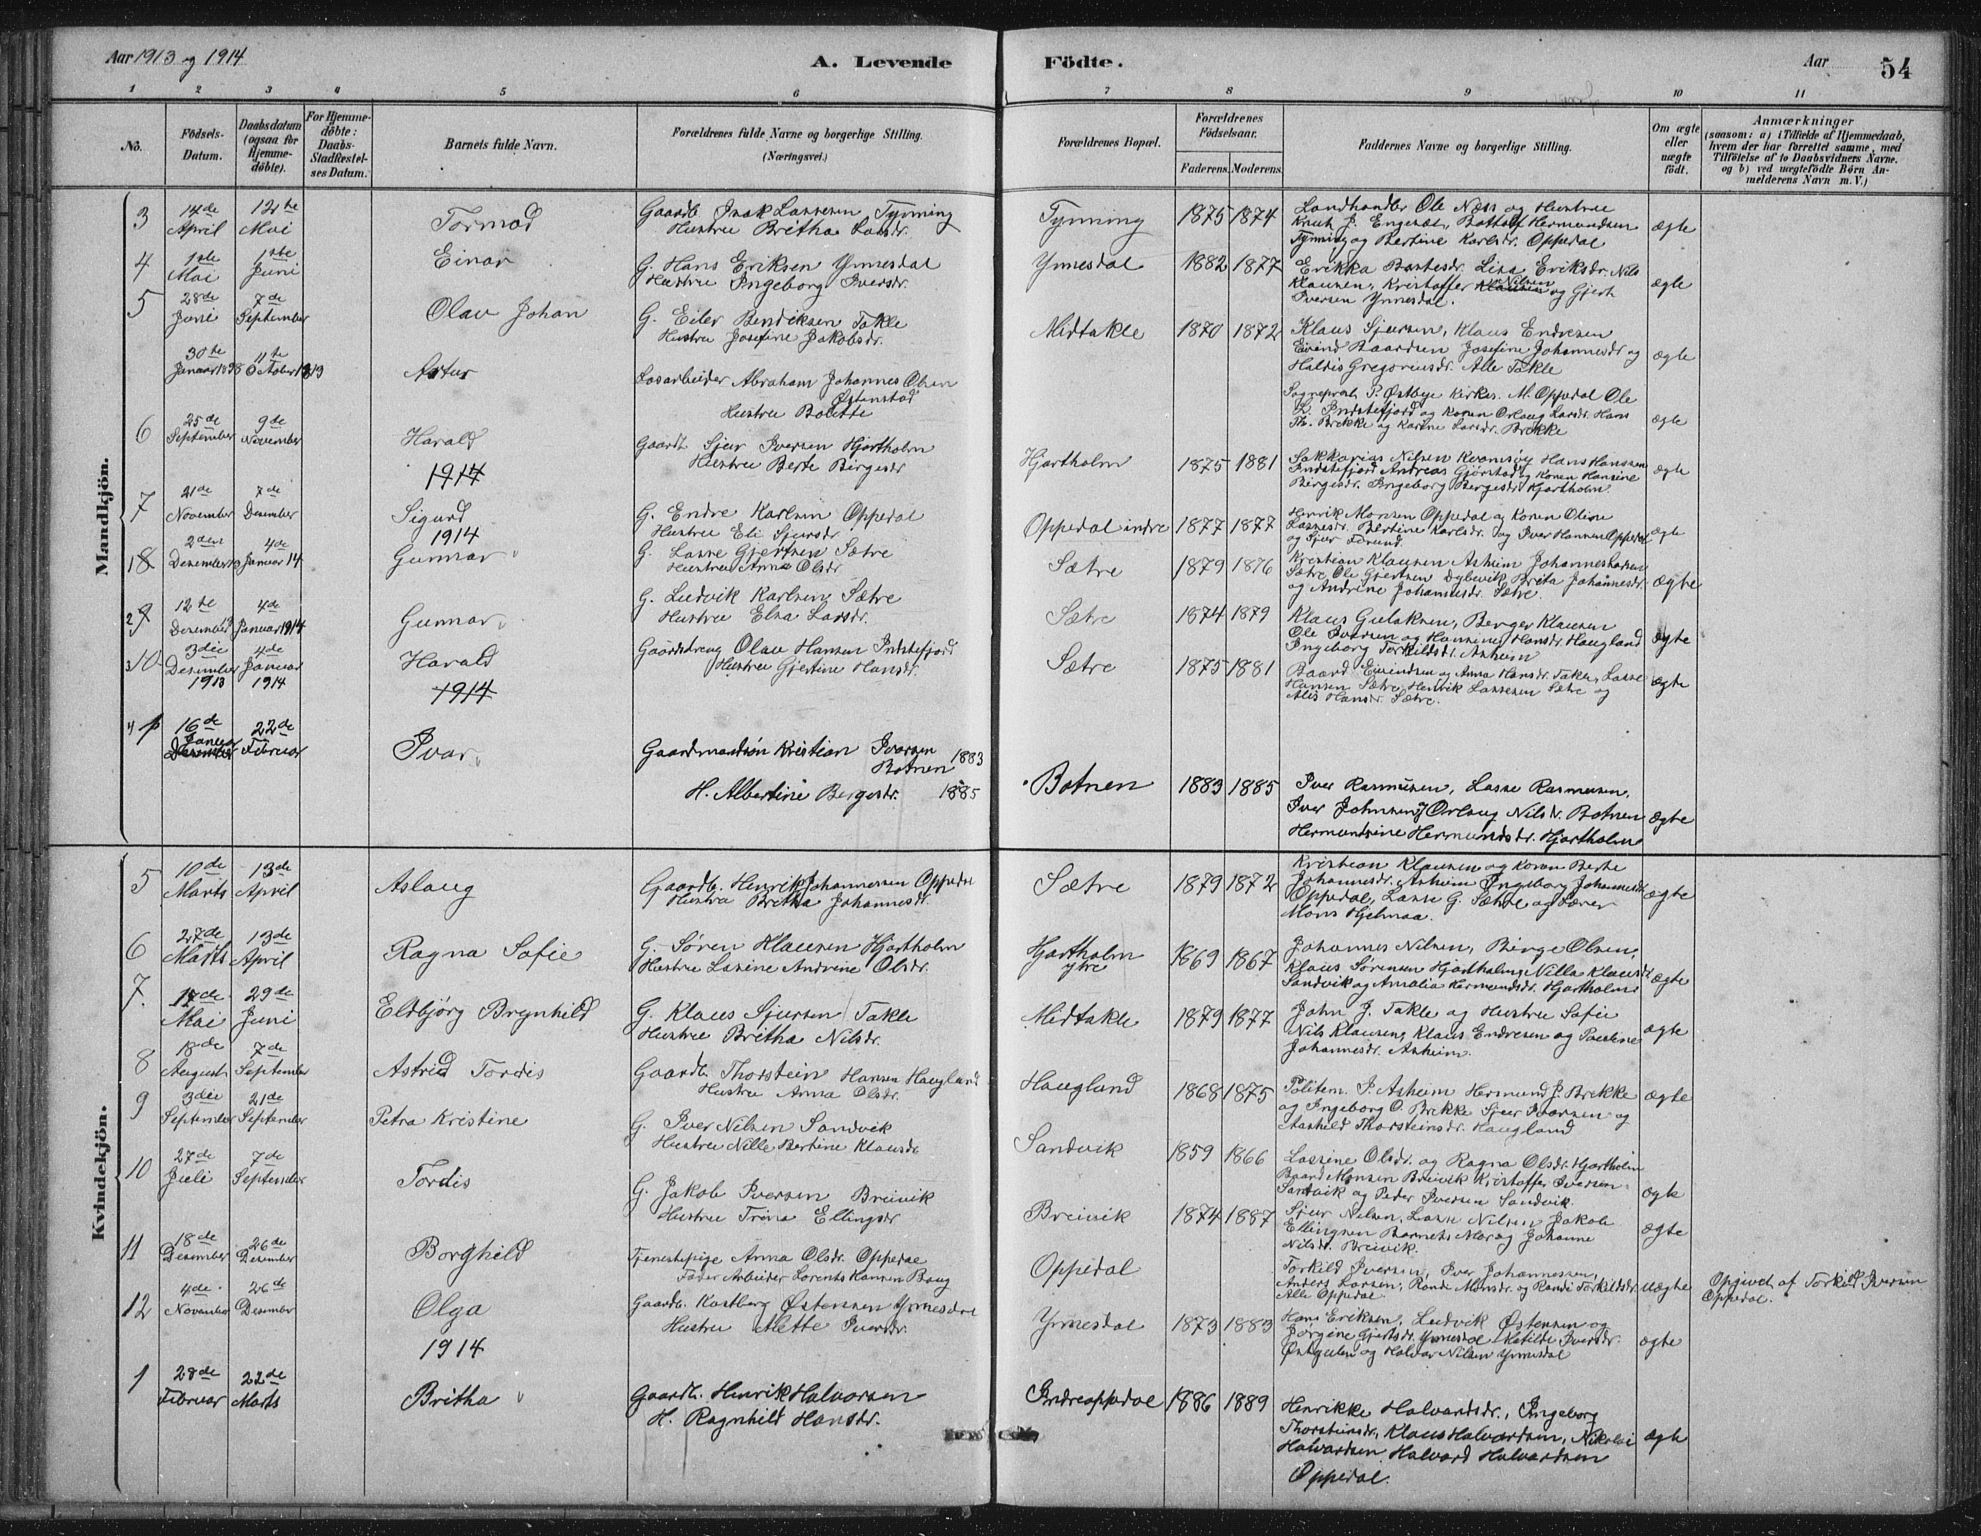 Aar 1913 og 1914
A. Levende Födte.
Aar
54
1 2 3 4 5 6 7 8 9 10 11
No.
Födsels-Datum.
Daabsdatum (ogsaa for Hjemme-döbte).
For Hjemme-döbte: Daabs-Stadfæstel-ses Datum.
Barnets fulde Navn.
Forældrenes fulde Navne og borgerlige Stilling.
(Næringsvei.)
Forældrenes Bopæl.
Forældrenes Födselsaar.
Faderens. Moderens.
Faddernes Navne og borgerlige Stilling.
Om ægte eller uægte födt.
Anmærkninger
(saasom: a) i Tilfælde af Hjemmedaab, hvem der har forrettet samme, med Tilföielse af to Daabsvidners Navne. og b) ved uægtefödte Börn An-melderens Navn m. V.)
Mandkjön.
3 14de April 12te Mai Tormod Gaardb. Isak Lassesen Tynning
Hustru Britha Larsdr.
Tynning 1875 1874 Landhandler Ole Næss og Hustru
Knut J. Engesæt, Bottolf Hermundsen
Tynning og Bertine Karlsdr. Oppedal ægte
4 1ste Mai 1ste Juni Einar G. Hans Eriksen Ynnesdal
Hustru Ingeborg Iversdr.
Ynnesdal 1882 1877 Erikka Bastesdr. Lisa Eriksdr. Nils
Klausen, Kristoffer Nilsen og Gjert
Iversen Ynnesdal. ægte
5 28de Juni 7de September Olav Johan G. Eiler Bendiksen Takle
Hustru Josefine Jakobsdr.
Midtakle 1870 1872 Klaus Sjursen, Klaus Endresen
Eivind Baardsen Josefine Johannesdr og
Haldis Gregoriusdr. Alle Takle ægte
30te Januar 1898 11te October 1913 Artur Losarbeider Abraham Johannes Olsen
Østenstad
Hustru Bolette
Sogneprest P. Østbye Kirkes. M. Oppedal Ole
L. Indstefjord og Konen Orlaug Larsdr. Hans
Th. Brekke og Karine Larsdr. Brekke ægte
6 25de September 9de November Harald Gaardb. Sjur Iversen Hjartholm
Hustru Berte Birgesdr
Hjartholm 1875 1881 Sakkarias Nilsen Kvamsöy Hans Hanssen
Indstefjord Andreas Gjörstad og Konen Hansine
Birgesdr. Ingeborg Bergesdr Hjartholm. ægte
1914
7 21de November 7de Desember Sigurd G. Endre Karlsen Oppedal
Hustru Eli Sjursdr
Oppedal indre 1877 1877 Henrik Monsen Oppedal og Konen Oline
Lassesdr. Bertine Karlsdr. og Iver Hansen Oppedal
og Sjur ægte
1914
18 2den Desember 4de Januar 14 Gunnar G. Lasse Gjertsen Sætre
Hustru Anna Olsdr
Sætre 1879 1876 Kristian Klausen Asheim Johannes Larsen
Sætre Ole Gjertsen Dybevik Brita Johannesdr.
og Andrine Johannesdr. Sætre. ægte
29 12te Desember 4de Januar 1914 Gunnar G. Ludvik Karlsen Sætre
Hustru Elsa Larsdr.
Sætre 1874 1879 Klaus Gulaksen, Berger Klausen
Ole Iversen og Hansine Hansdr. Haugland
Ingeborg Torkildsdr. Asheim ægte
310 3die Desember 1913 4de Januar 1914 Harald Gaardsdreng Olav Hansen Indstefjord
Hustru Gjertine Hansdr.
Sætre 1875 1881 Baard Eivindsen og Anna Hansdr. Takle, Lasse
Hansen Sætre, Henrik Lassesen Sætre og
Alis Hansdr. Sætre. ægte
1914
4 1 16de Januar 22de Februar Ivar Gaardmandsön Kristian Iversen
Botnen 1883
H. Albertine Bergesdr. 1885
Botnen 1883 1885 Iver Rasmusen, Lasse Rasmusen,
Iver Johnsen, Orlaug Nilsdr. Botnen
Hermundsine Hermundsdr. Hjartholm ægte
Kvindekjön.
5 10de Marts 13de April Aslaug Gaardb. Henrik Johannessen Oppedal
Hustru Britha Johannesdr.
Sætre 1879 1872 Kristian Klausen og Konen Berte
Johannesdr. Asheim Ingeborg Johannesdr
Oppedal, Lasse G. Sætre og Lærer
Mons Hjelmaa. ægte
6 27de Marts 13de April Ragna Sofie G. Sören Klausen Hjartholm
Hustru Lasine Andrine Olsdr.
Hjartholm ytre 1869 1867 Johannes Nilsen, Birge Olsen,
Klaus Sörensen Hjartholm, Nilla Klausdr
Sandvik og Amalia Hermundsdr. Hjartholm ægte
7. 17de Mai 29de Juni Eldbjörg Brynhild G. Klaus Sjursen Takle
Hustru Britha Nilsdr.
Midtakle 1879 1877 John J. Takle og Hustru Sofie
Nils Klausen, Klaus Endresen og Pauline
Johannesdr. Asheim. ægte
8 18de August 7de September Astrid Tordis Gaardb. Thorstein Hansen Haugland
Hustru Anna Olsdr.
Haugland 1868 1875 Politem. P. Asheim Hermund J. Brekke
og Ingeborg O. Brekke Sjur Ivarsen og
Aashild Thorsteinsdr. Haugland ægte
9 3die September 21de September Petra Kristine G. Iver Nilsen Sandvik
Hustru Nille Bertine Klausdr
Sandvik 1859 1866 Lassine Olsdr. og Ragna Olsdr. Hjartholm
Baard Monsen Breivik Kristoffer Iversen
Sandvik og Peder Iversen Sandvik. ægte
10 27de Juli 7de September Tordis G. Jakob Iversen Breivik
Hustru Trina Ellingsdr
Breivik 1874 1887 Sjur Nilsen, Lasse Nilsen, Jakob
Ellingsen Barnets Mor og Johanne
Nilsdr. Breivik. ægte
11 18de Desember 26de Desember Borghild Tjenestepige Anna Olsdr. Oppedal
Fader Arbeider Lorents Hansen Baug
Oppedal Torkild Iversen, Iver Johannessen,
Anders Larsen, Randi Monsdr. og Randi Torkildsdr.
Alle Oppedal uægte Opgivet af Torkild Iversen
Oppedal.
12 4de November 26de Desember Olga Gaardb. Kastberg Østensen Ynnesdal
Hustru Mette Iversdr.
Ynnesdal 1873 1883 Hans Eriksen, Ludvik Østensen og
Jörgine Gjertsdr. Ynnesdal Matilde Iversdr.
Østgulen og Halvar Nilsen Ynnesdal ægte
1914
1 28de Februar 22de Marts Britha Gaardb. Henrik Halvorsen
H. Ragnhild Hansdr.
Indreoppedal 1886 1889 Henrikke Halvardsdr., Ingeborg
Thorsteinsdr., Klaus Halvardsen, Nikolai
Halvardsen, Halvard Halvardsen
Oppedal. ægte